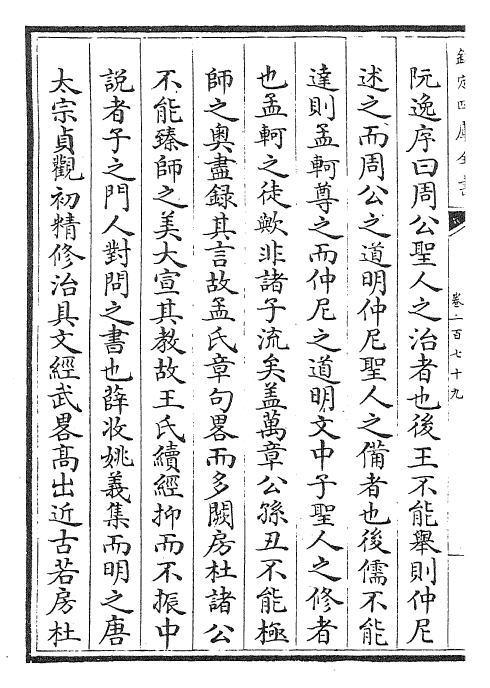 欽定四庫全書
卷二百七十九
阮逸序曰周公聖人之治者也後王不能舉則仲尼
述之而周公之道明仲尼聖人之備者也後儒不能
達則孟軻尊之而仲尼之道明文中子聖人之修者
也孟軻之徒歟非諸子流矣盖萬章公孫丑不能極
師之奥盡録其言故孟氏章句畧而多闕房杜諸公
不能臻師之美大宣其教故王氏續經抑而不振中
説者子之門人對問之書也薛收姚義集而明之唐
太宗貞觀初精修治具文經武畧髙出近古若房杜